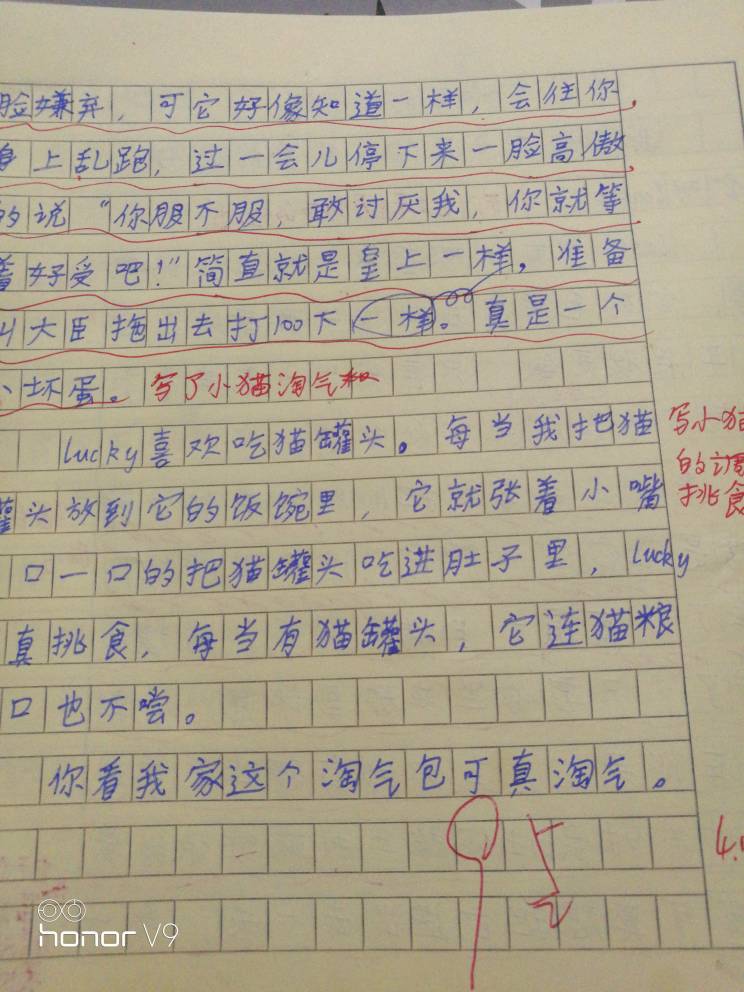 脸嫌弃，可它好像知道一样，会往你
身上乱跑，过一会儿停下来一脸高傲
的说“你服不服，敢讨厌我，你就等
着好受吧！”简直就是皇上一样，准备
叫大臣拖出去打100下一样。真是一个
小坏蛋。写了小猫淘气和
lucky喜欢吃猫罐头。每当我把猫
罐头放到它的饭碗里，它就张着小嘴
口一口的把猫罐头吃进肚子里，lucky
真挑食，每当有猫罐头，它连猫粮
口也不尝。
你看我家这个淘气包可真淘气。
写小猫
的调
挑食
honor V9